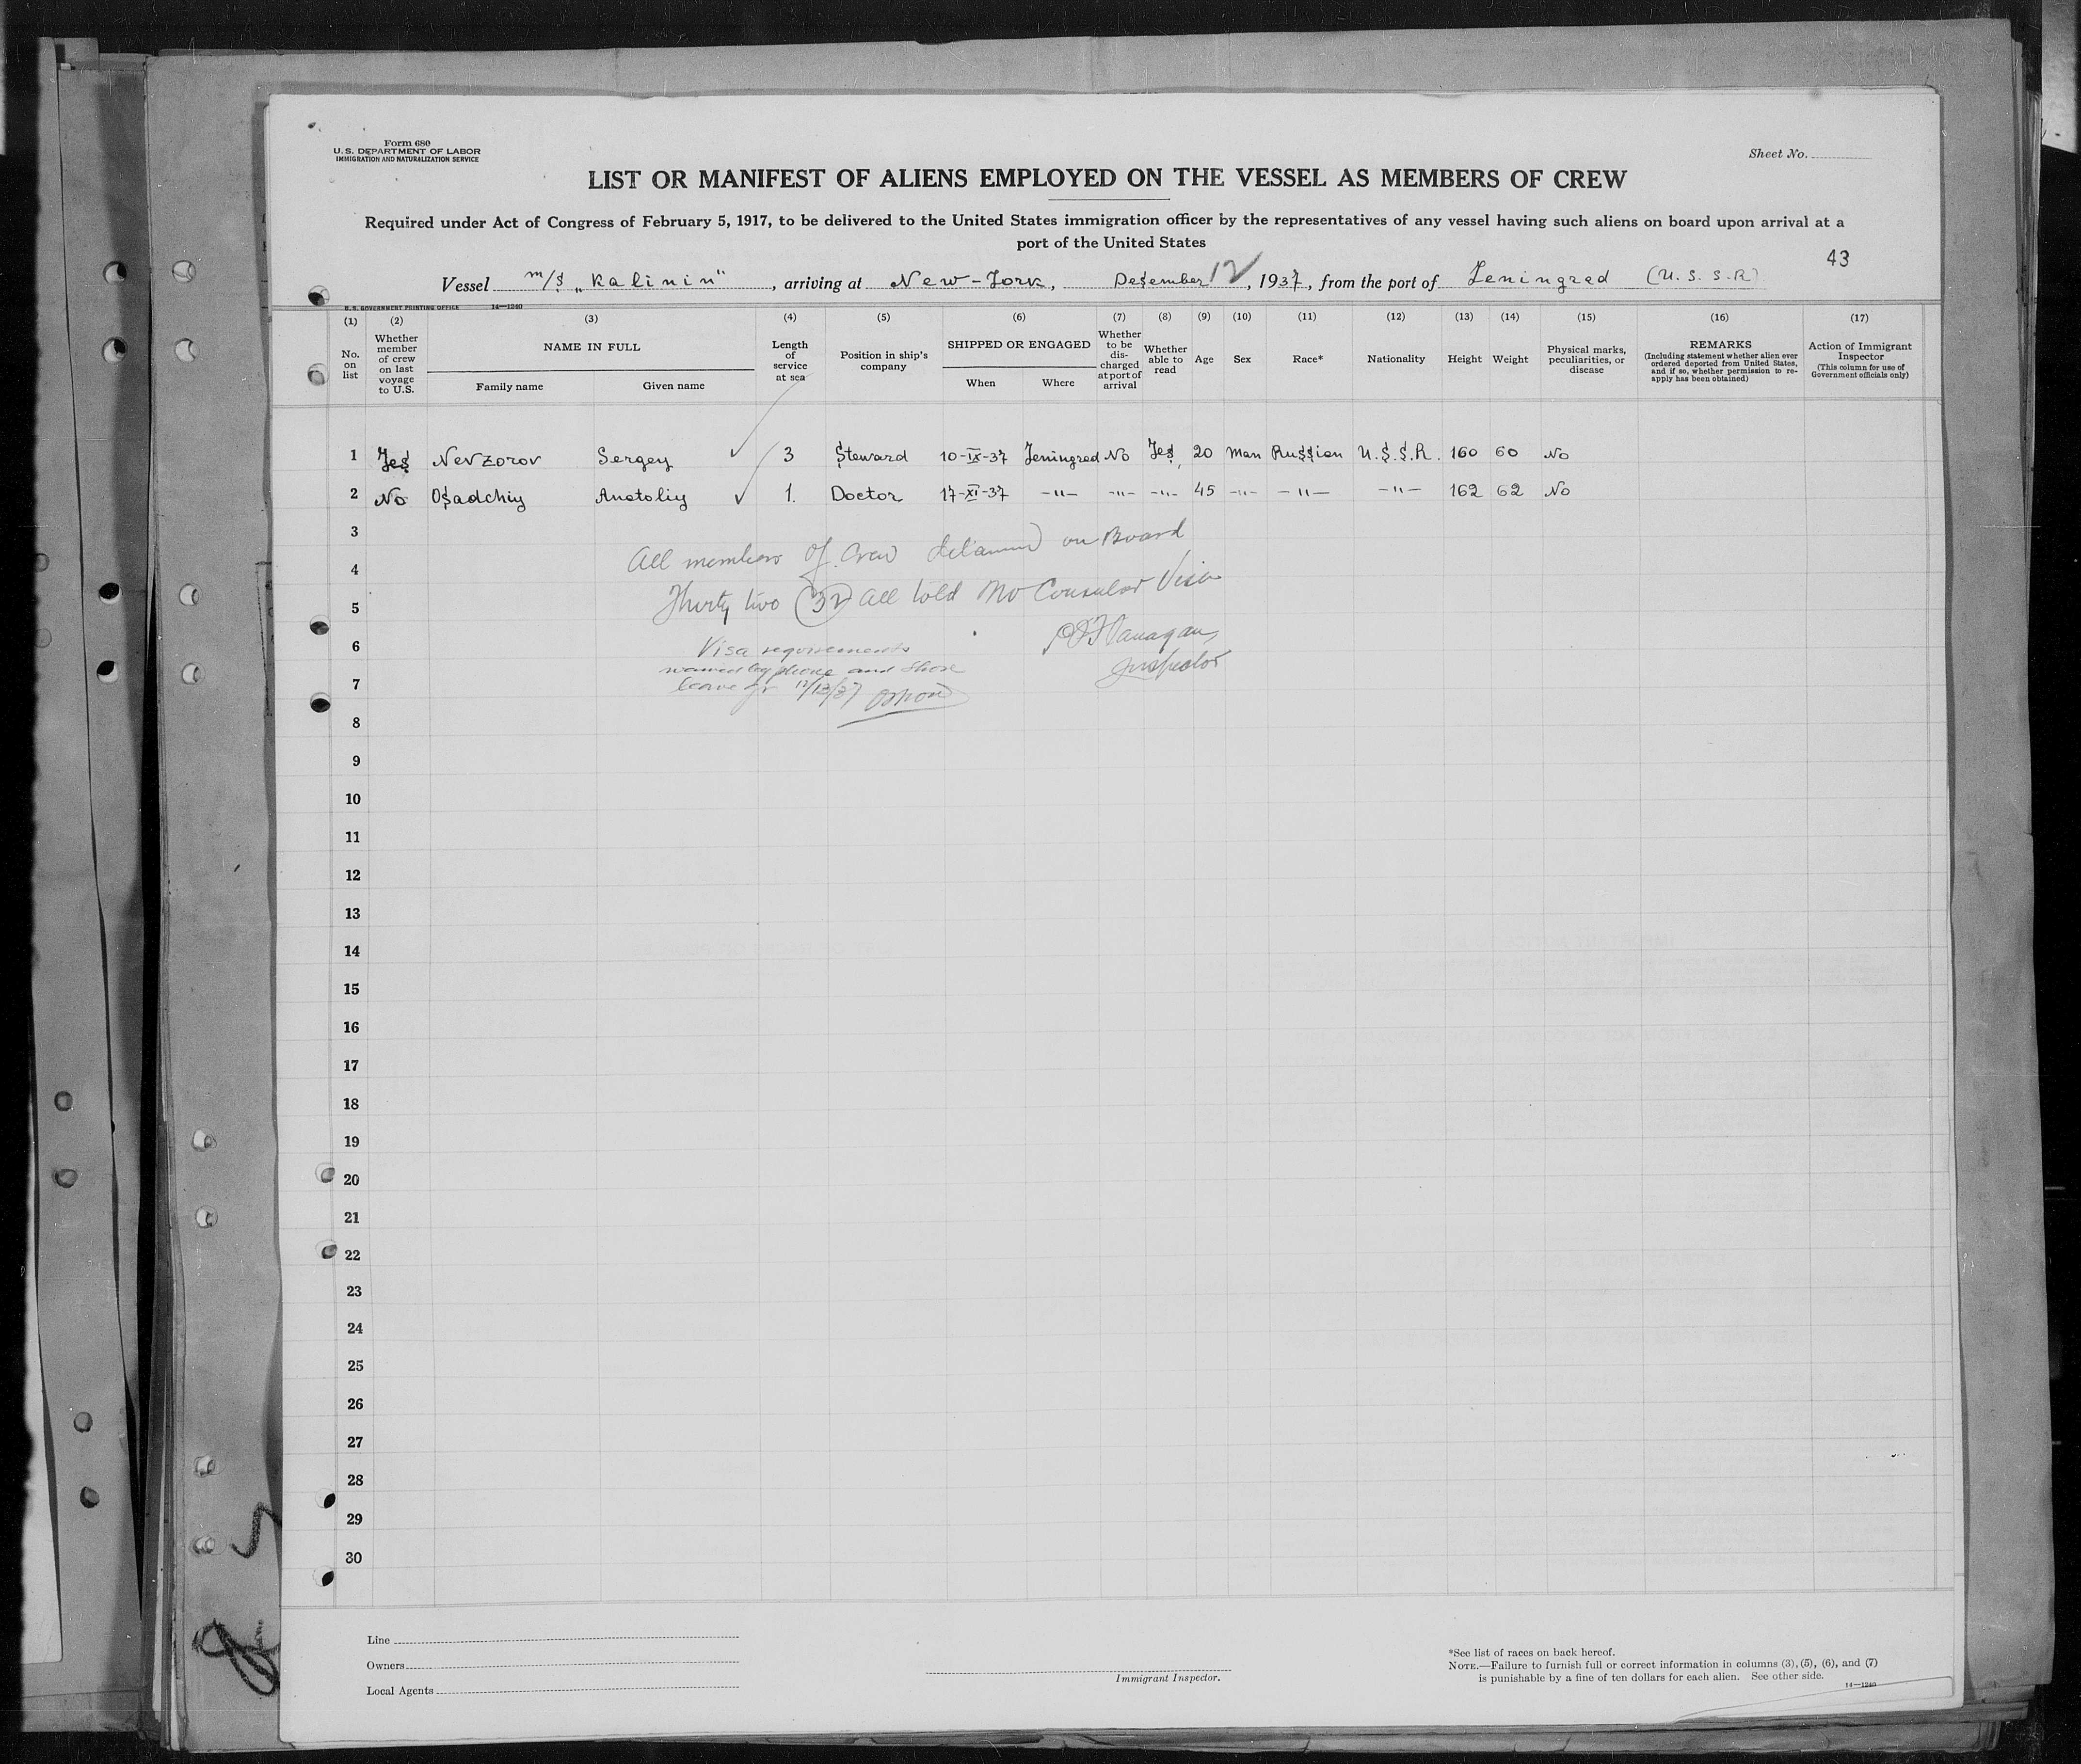 Form 680
U. S. DEPARTMENT OF LABOR
IMMIGRATION AND NATURALIZATION SERVICE
Sheet No.
LIST OR MANIFEST OF ALIENS EMPLOYED ON THE VESSEL AS MEMBERS OF CREW
Required under Act of Congress of February 5, 1917, to be delivered to the United States immigration officer by the representatives of any vessel having such aliens on board upon arrival at a
port of the United States
43
Vessel m/s „Kalinin", arriving at New-York, Desember 12, 1937, from the port of Leningrad (U.S.S.R)
U.S. GOVERNMENT PRINTING OFFICE 14—1240
(1) No. on list
(2) Whether member of crew on last voyage to U.S.
(3) NAME IN FULL
Family name
Given name
(4) Length of service at sea
(5) Position in ship's company
(6) SHIPPED OR ENGAGED
When
Where
(7) Whether to be discharged at port of arrival
(8) Whether able to read
(9) Age
(10) Sex
(11) Race*
(12) Nationality
(13) Height
(14) Weight
(15) Physical marks, peculiarities, or disease
(16) REMARKS
(Including statement whether alien ever ordered deported from United States, and if so, whether permission to re-apply has been obtained)
(17) Action of Immigrant Inspector
(This column for use of Government officials only)
1 Yes Nevzorov Sergey 3 Steward 10-IX-37 Leningrad No Yes 20 Man Russian U.S.S.R. 160 60 No
2 No Osadchiy Anatoliy 1. Doctor 17-XI-37 -"- -"- -"- 45 -"- -"- -"- 162 62 No
3
All members of Crew detained on Board
4
Thirty two (32) all told No Consular Visa
5
6
Visa requirements
O'Flanagan
waived by phone and shore
Inspector
7
leave gr 12/13/37
8
9
10
11
12
13
14
15
16
17
18
19
20
21
22
23
24
25
26
27
28
29
30
Line
Owners
Local Agents
Immigrant Inspector.
*See list of races on back hereof.
NOTE.—Failure to furnish full or correct information in columns (3), (5), (6), and (7)
is punishable by a fine of ten dollars for each alien. See other side.
14—1240